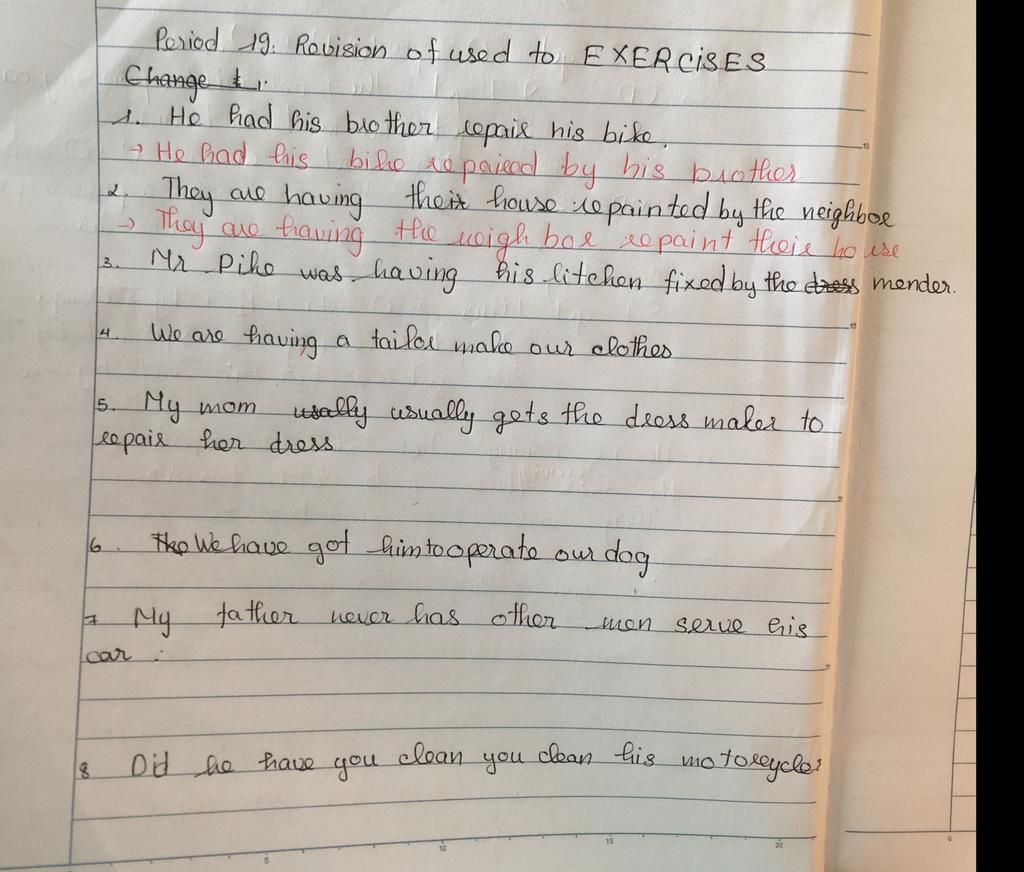 Period 19: Revision of used to EXERCISES
Change t,.
1. He had his brother repair his bike.
→ He had his bike repaired by his brother
2. They are having their house repainted by the neighbor
→ They are having the neighbor repaint their house
3. Mr Pike was having his litchen fixed by the dress mender.
4. We are having a tailor make our clothes
5. My mom usally usually gets the dress maker to
repair her dress
6. The We have got him to operate our dog
7 My father never has other men serve his
car.
8 Did he have you clean you clean his motorcycle?